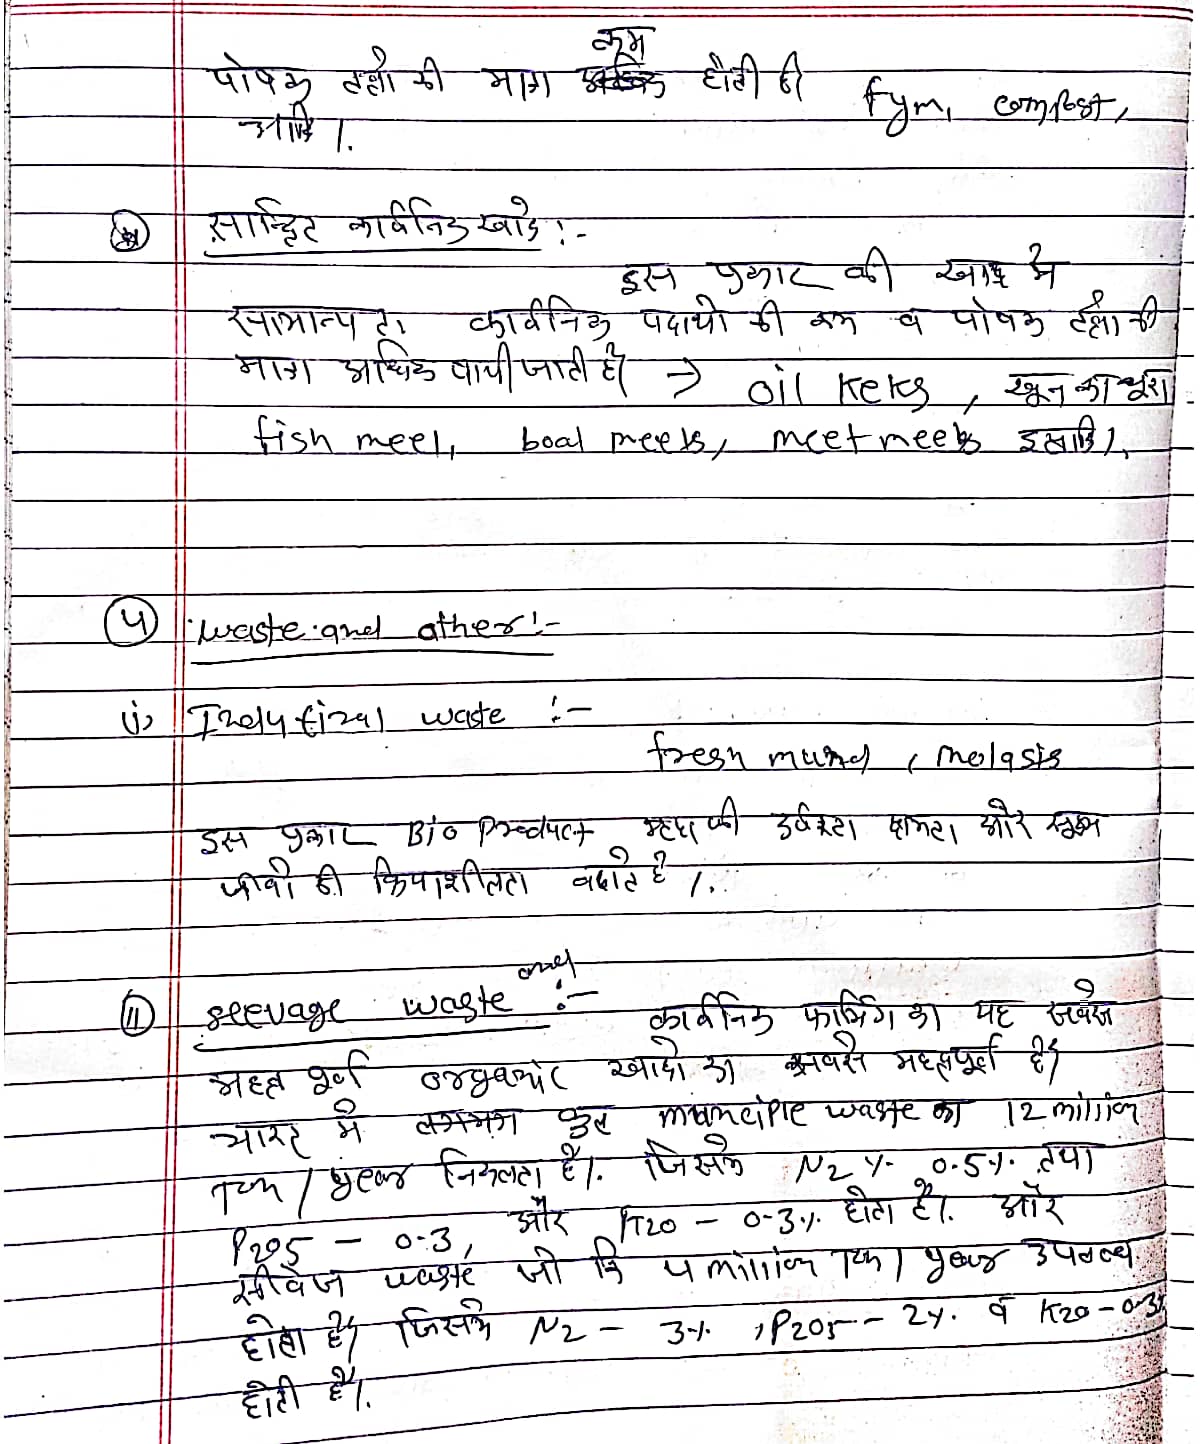 कम
पोषक तत्वो की मात्रा होती ही fym, compost,
आदि ।.
सान्द्रित कार्बनिक खादे :-
इस प्रकार की खाद मे
सामान्यतः कार्बनिक पदार्थो की कम व पोषक तत्वो की
मात्रा अधिक पायी जाती है → oil keks, खून का चूरा
fish meel, boal meels, meet meels इत्यादि ।.
५ waste and ather :-
(i) waste :-
fresh mund, molasis
इस प्रकार Bio Product मृदा की उर्वरता क्षमता और सूक्ष्म
जीवो की क्रियाशीलता बढाते है ।.
and
(ii) seevage waste :- कार्बनिक फार्मिंग का यह सबसे
महत्व पूर्ण organic खादो का सबसे महत्वपूर्ण है।
भारत मे लगभग कुल muncipie waste का 12 million
Ton / year निकलता है ।. जिसमे N2 %. 0.5%. तथा
P2O5 - 0.3, और K2O - 0.3%. होता है ।. और
सीवेज waste जो कि 4 million Ton / year उपलब्ध
होता है। जिसमे N2 - 3%, P2O5 - 2%. व K2O - 0.3%
होती है ।.